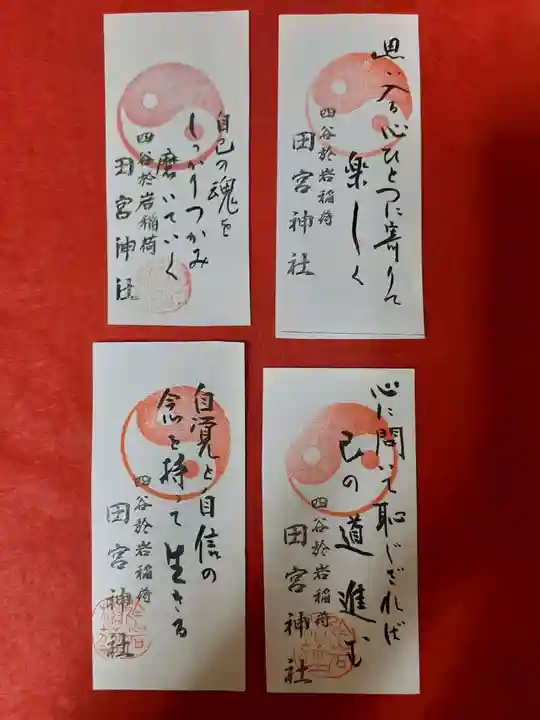 思い入る心ひとつに寄りて
楽しく
四谷於岩稲荷
田宮神社
自己の魂を
しっかりつかみ
磨いていく
四谷於岩稲荷
田宮神社
心に問いて恥じざれば
己の道進む
四谷於岩稲荷
田宮神社
自覚と自信の
念を持って生きる
四谷於岩稲荷
田宮神社